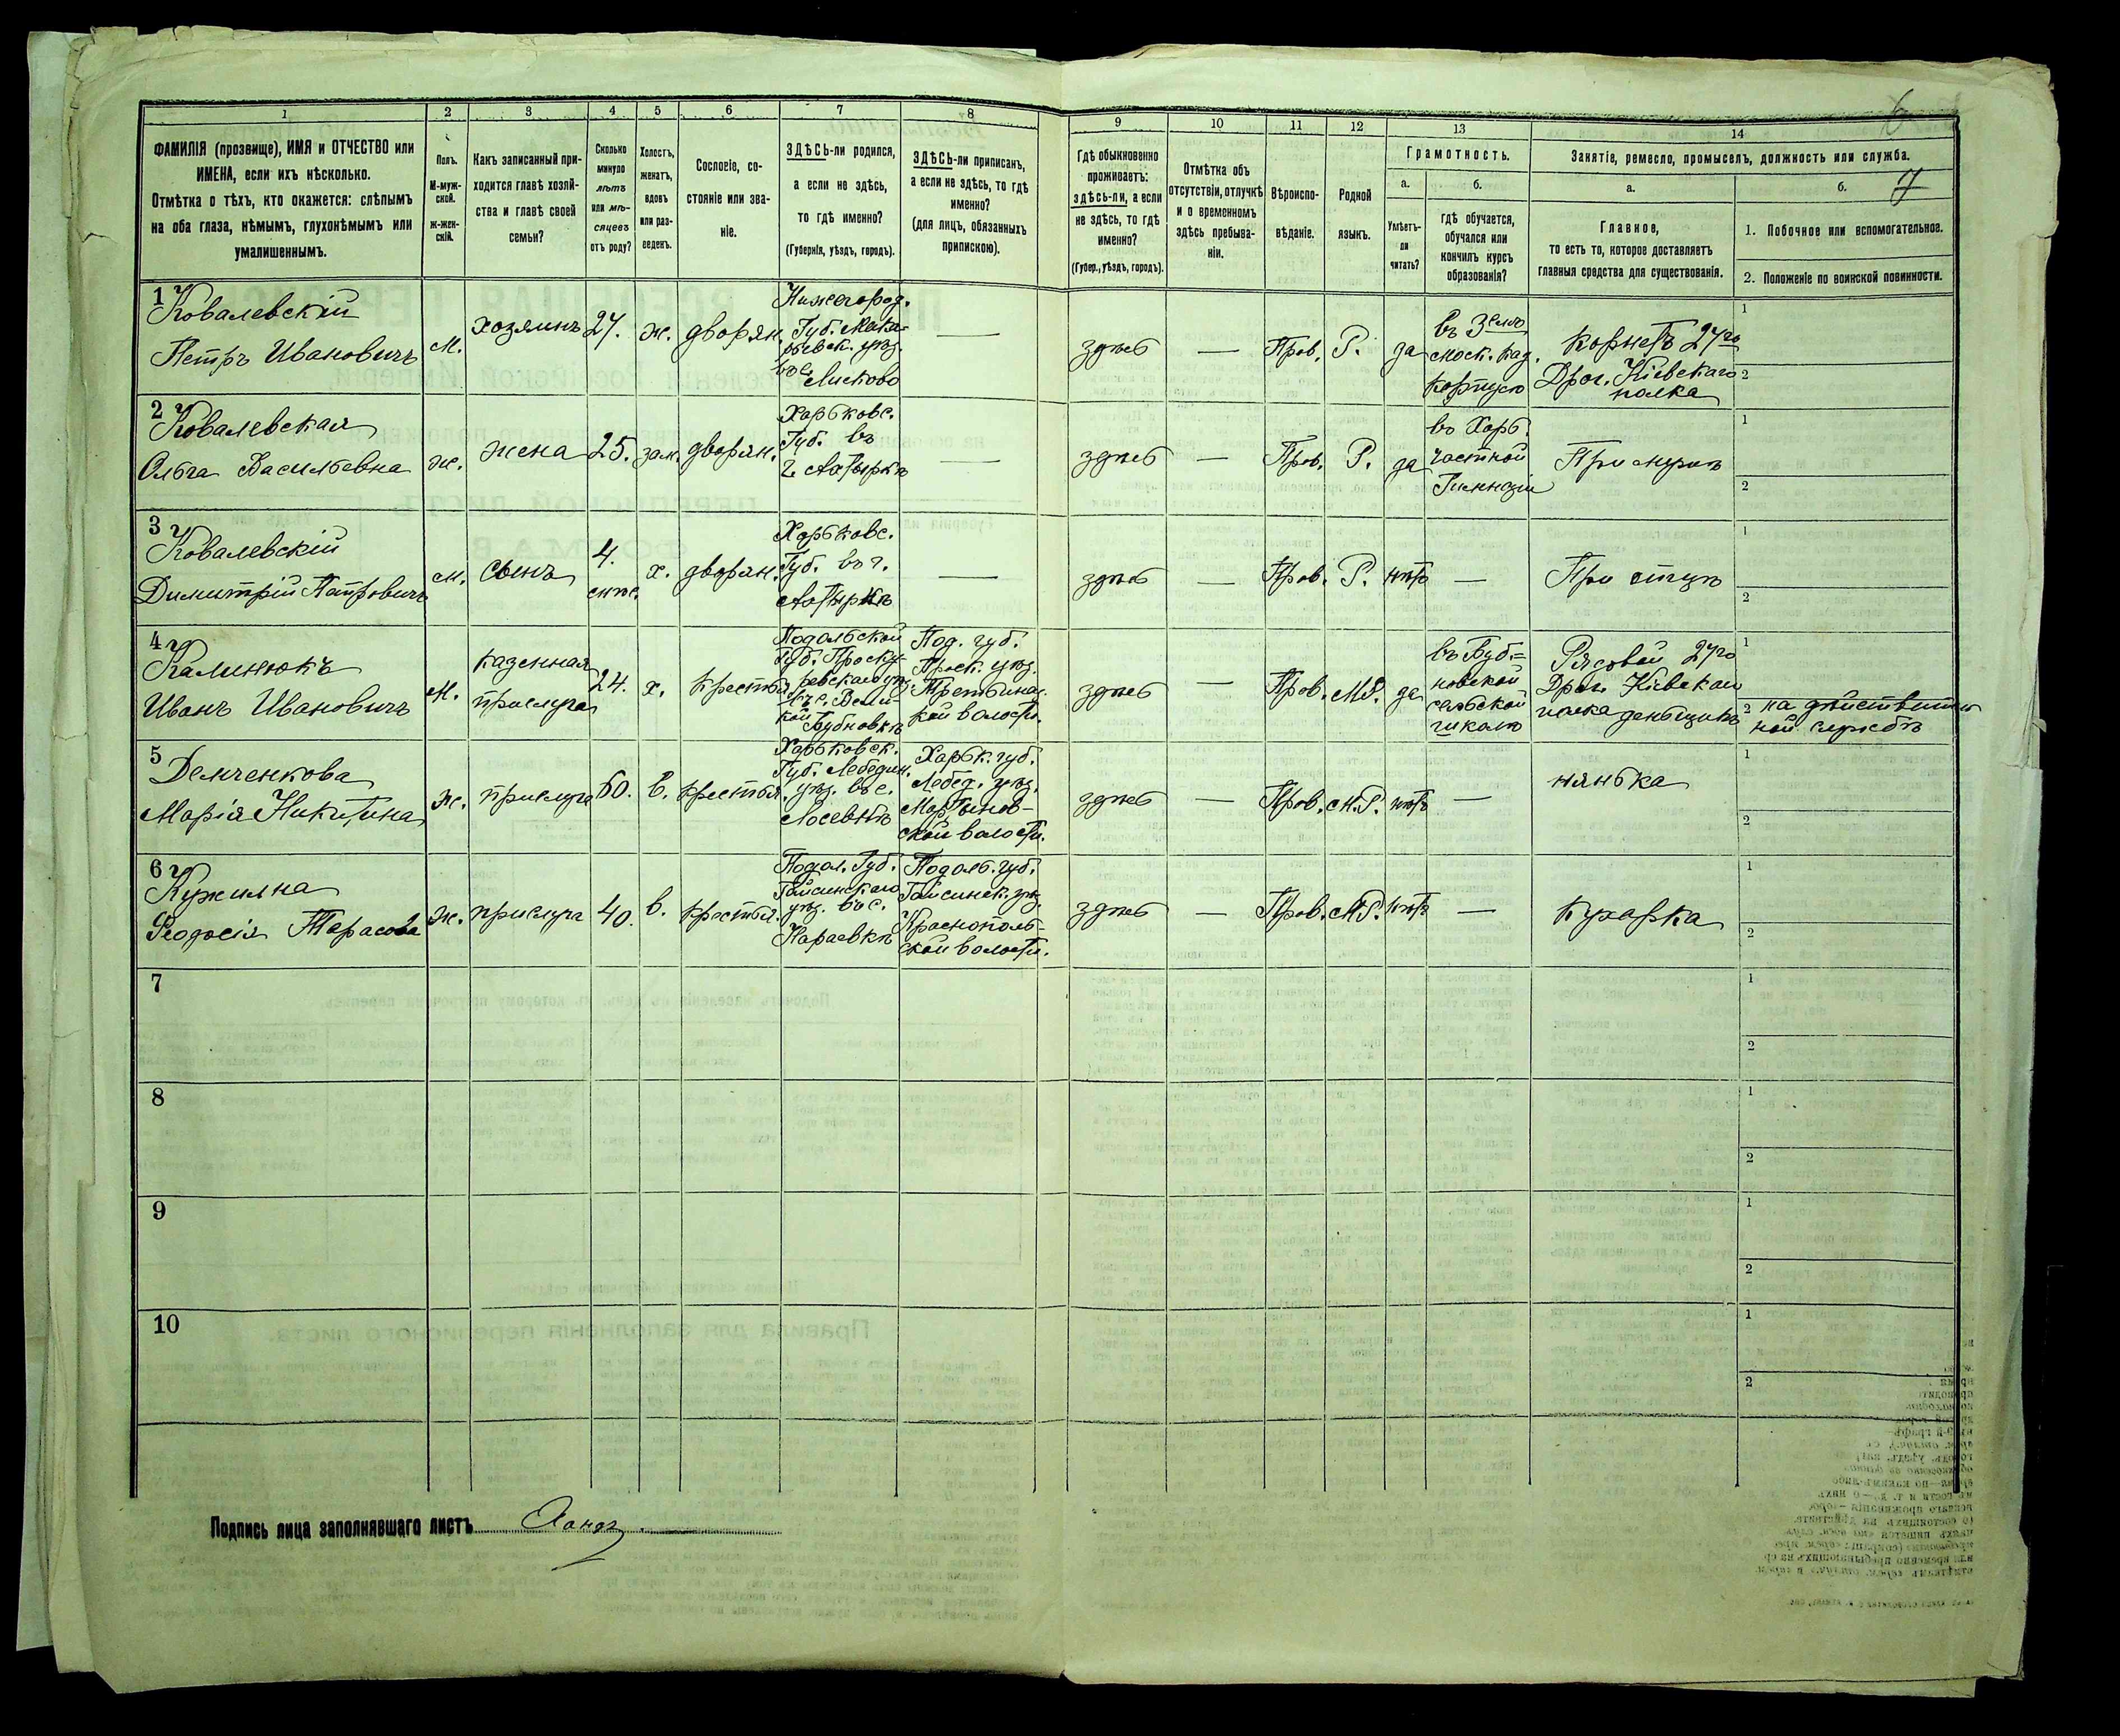 6
7
1
2
3
4
5
6
7
8
9
10
11
12
13
14
ФАМИЛІЯ (прозвище), ИМЯ и ОТЧЕСТВО или
ИМЕНА, если ихъ нѣсколько.
Отмѣтка о тѣхъ, кто окажется: слѣпымъ
на оба глаза, нѣмымъ, глухонѣмымъ или
умалишеннымъ.
Полъ.
М-муж-
ской.
ж-жен-
скій.
Какъ записанный при-
ходится главѣ хозяй-
ства и главѣ своей
семьи?
Сколько
минуло
лѣтъ
или мѣ-
сяцевъ
отъ роду?
Холостъ,
женатъ,
вдовъ
или раз-
веденъ.
Сословіе, со-
стояніе или зва-
ніе.
ЗДѢСЬ-ли родился,
а если не здѣсь,
то гдѣ именно?
(Губернія, уѣздъ, городъ).
ЗДѢСЬ-ли приписанъ,
а если не здѣсь, то гдѣ
именно?
(для лицъ, обязанныхъ
припискою).
Гдѣ обыкновенно
проживаетъ:
здѣсь-ли, а если
не здѣсь, то гдѣ
именно?
(Губер., уѣздъ, городъ).
Отмѣтка объ
отсутствіи, отлучкѣ
и о временномъ
здѣсь пребыва-
ніи.
Вѣроиспо-
вѣданіе.
Родной
языкъ.
Грамотность.
а.
Умѣетъ-
ли
читать?
б.
гдѣ обучается,
обучался или
кончилъ курсъ
образованія?
Занятіе, ремесло, промыселъ, должность или служба.
а.
Главное,
то есть то, которое доставляетъ
главныя средства для существованія.
б.
1. Побочное или вспомогательное.
2. Положеніе по воинской повинности.
1
Ковалевскій
Петръ Ивановичъ
м.
хозяинъ
27.
ж.
дворян.
Нижегород.
Губ. Мака-
рьевск. уѣз.
въ с.
Лисково
—
здѣсь
—
Прав.
Р.
да
моск. кад.
корпусѣ
Корнетъ 27го
Драг. Кіевскаго
полка
1
2
2
Ковалевская
Ольга Васильевна
ж.
жена
25.
зам.
дворян.
Харьковс.
Губ. въ
г. Ахтыркѣ
—
здѣсь
—
Прав.
Р.
да
въ Харь.
частной
Гимназіи
При мужѣ
1
2
3
Ковалевскій
Димитрій Петровичъ
м.
сынъ
4.
мѣс.
х.
дворян.
Харьковс.
Губ. въ г.
Ахтыркѣ
—
здѣсь
—
Прав.
Р.
нѣтъ
—
При отцѣ
1
2
4
Калинюкъ
Иванъ Ивановичъ
м.
казенная
прислуга
24.
х.
крестья.
Подольской
Губ. Проску-
ровскаго уѣз.
въ с. Вели-
кой
Бубновкѣ
Под. губ.
Проск. уѣз.
кой волости.
здѣсь
—
Прав.
М.Р.
да
въ Буб=
новской
сельской
школѣ
Рядовой 27го
Драг. Кіевскаго
полка деньщикъ
1
2 на дѣйствитель
ной службѣ
5
Демченкова
Марія Никитина
ж.
прислуга
60.
в.
крестья.
Харьковск.
Губ. Лебедин.
уѣз. въ с.
Харьк. губ.
Лебед. уѣз.
Мартынов-
ской волости.
здѣсь
—
Прав.
М.Р.
нѣтъ
—
нянька
1
2
6
Кужилна
Феодосія Тарасова
ж.
прислуга
40.
в.
крестья.
Подол. Губ.
Гайсинскаго
уѣз. въ с.
Караевкѣ
Подоль. губ.
Гайсинск. уѣз.
Краснополь-
ской волости.
здѣсь
—
Прав.
М.Р.
нѣтъ
—
Кухарка
1
2
7
1
2
8
1
2
9
1
2
10
1
2
Подпись лица заполнявшаго листъ